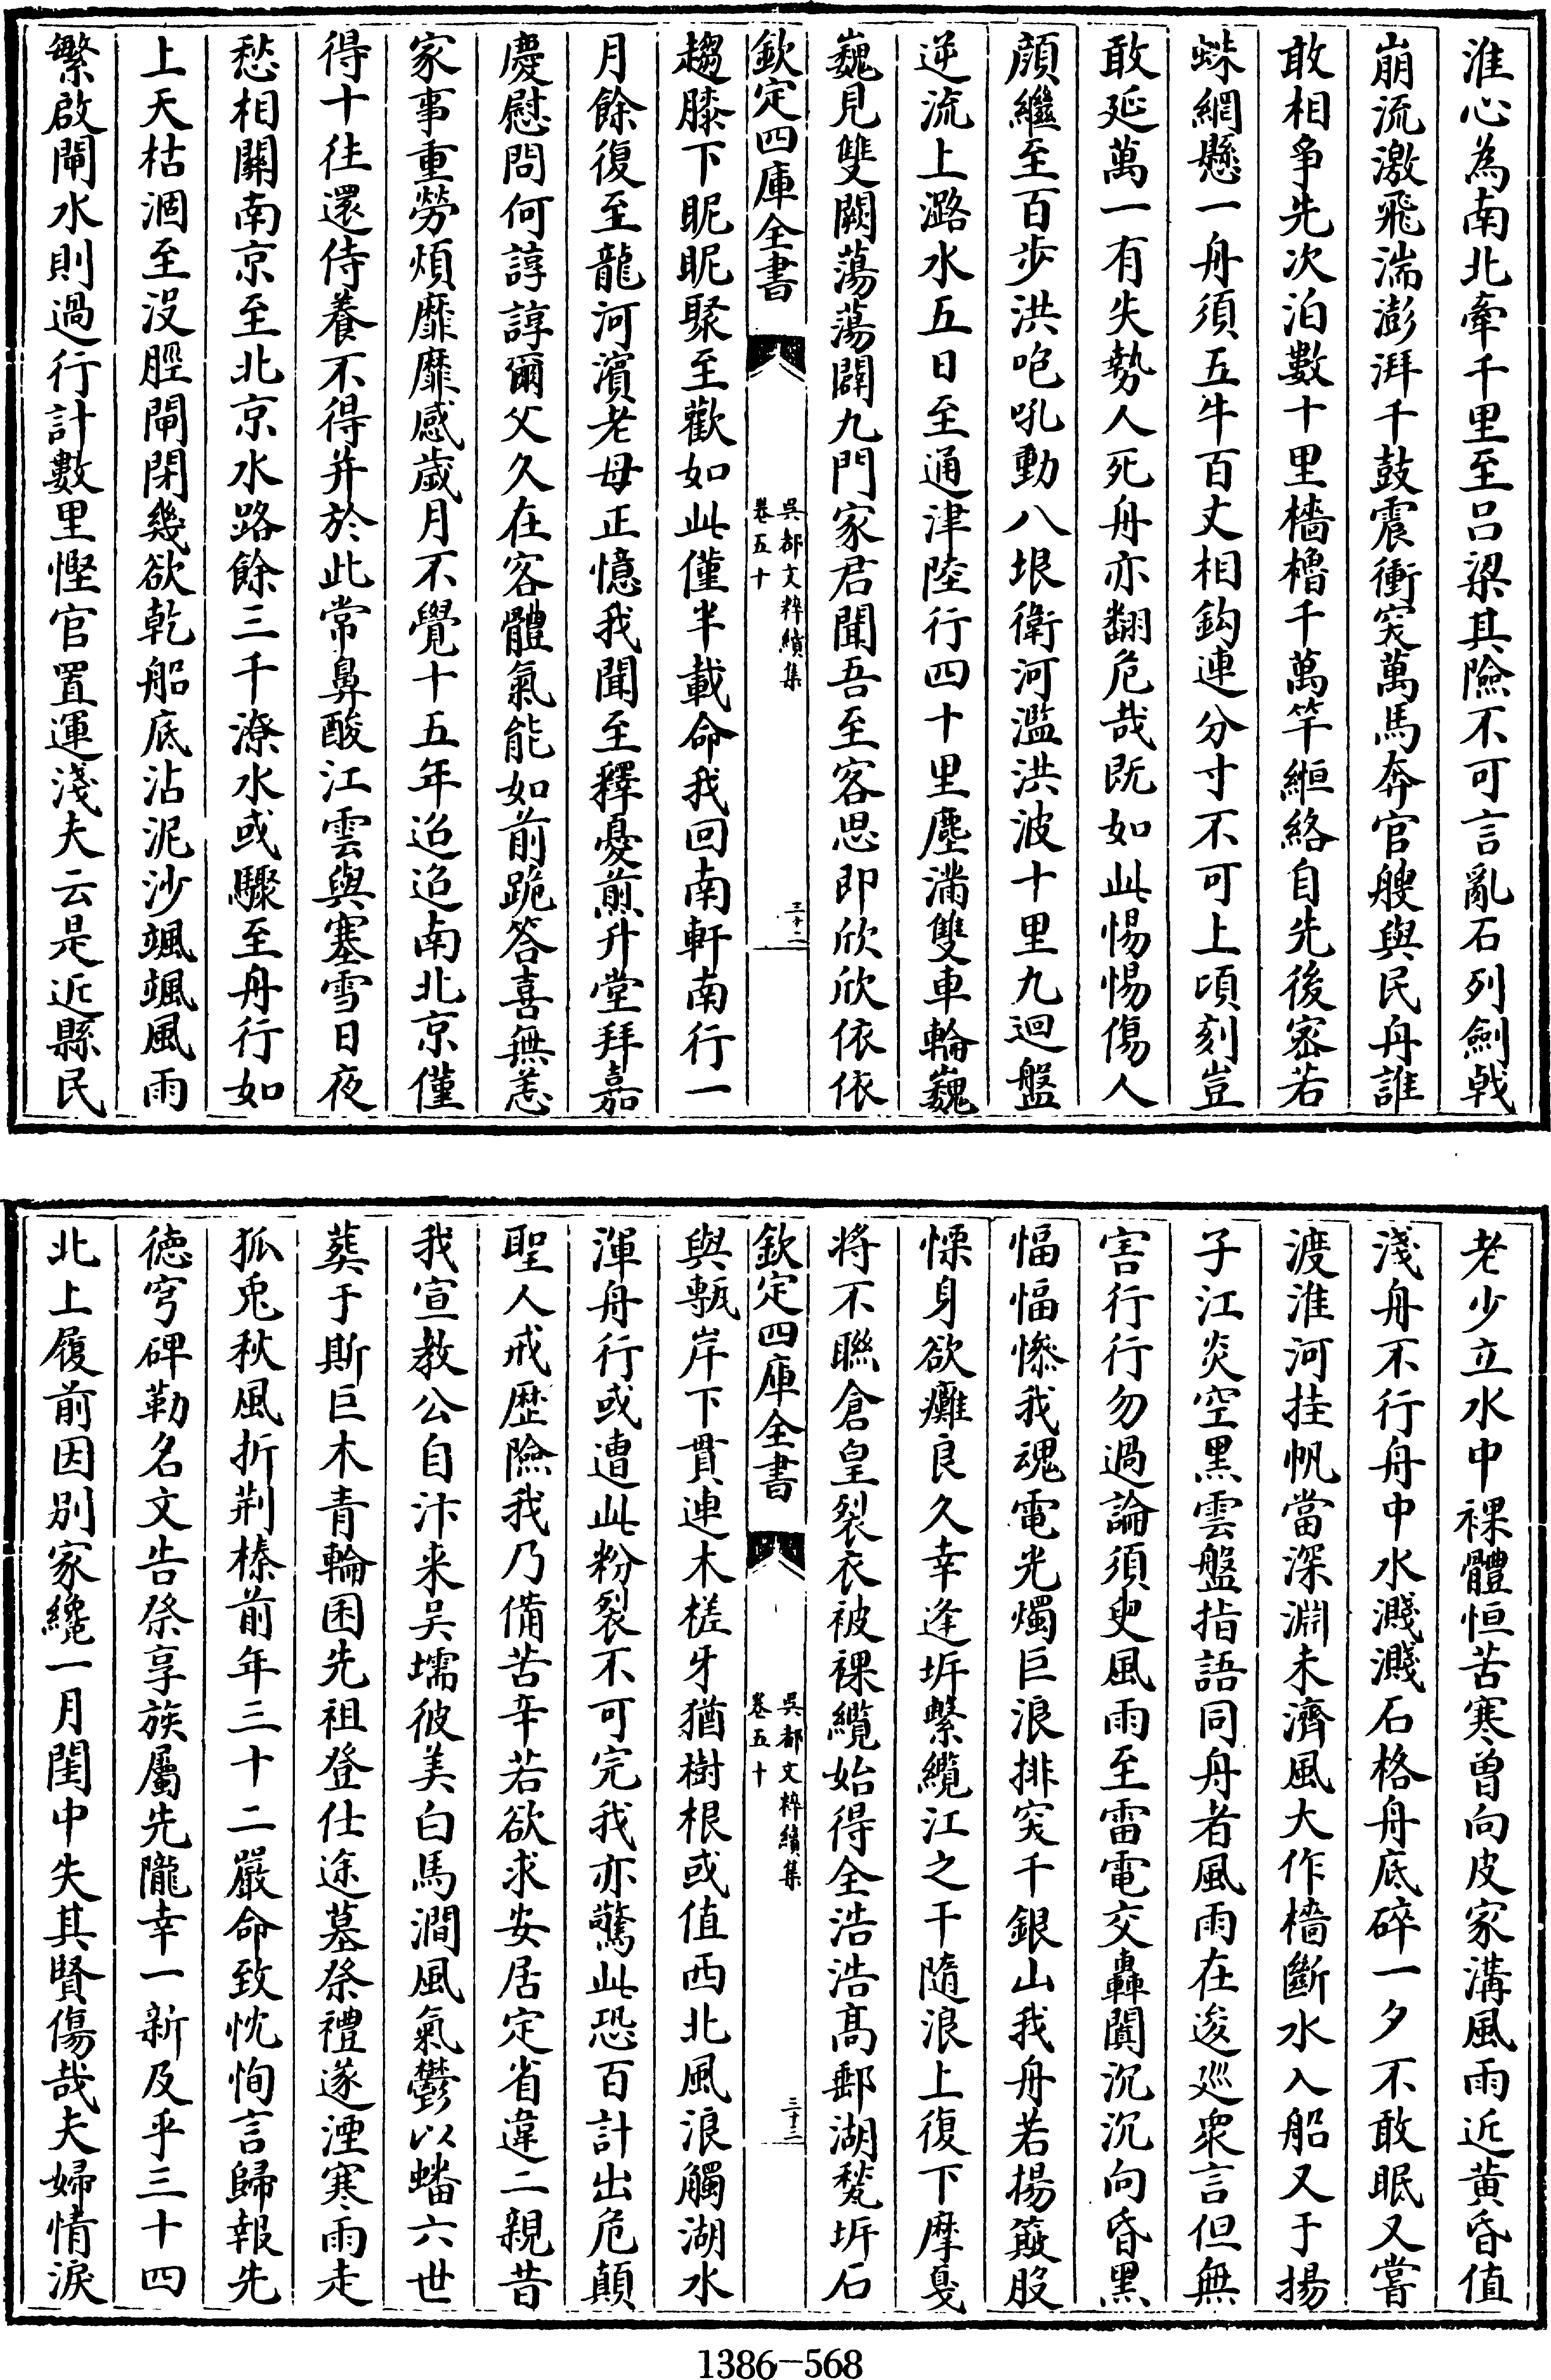 淮心為南北牽千里至吕梁其險不可言亂石列劍戟
崩流激飛湍澎湃千鼓震衝突萬馬奔官艘與民舟誰
敢相爭先次泊數十里檣櫓千萬竿緪絡自先後宻若
蛛網懸一舟須五牛百丈相鈎連分寸不可上頃刻豈
敢延萬一有失勢人死舟亦翻危哉既如此惕惕傷人
顔繼至百步洪咆吼動八垠衛河濫洪波十里九迴盤
逆流上潞水五日至通津陸行四十里塵滿雙車輪巍
巍見雙闕蕩蕩闢九門家君聞吾至客思即欣欣依依
欽定四庫全書
吳都文粹續集
卷五十
三十二
趨膝下昵昵聚至歡如此僅半載命我回南軒南行一
月餘復至龍河濱老母正憶我聞至釋憂煎升堂拜嘉
慶慰問何諄諄爾父久在客體氣能如前跪答喜無恙
家事重勞煩靡靡感歲月不覺十五年迢迢南北京僅
得十往還侍養不得并於此常鼻酸江雲與塞雪日夜
愁相關南京至北京水路餘三千潦水或驟至舟行如
上天枯涸至没脛閘閉幾欲乾船底沾泥沙颯颯風雨
繁啟閘水則過行計數里慳官置運淺夫云是近縣民
老少立水中裸體恒苦寒曽向皮家溝風雨近黄昏值
淺舟不行舟中水濺濺石格舟底碎一夕不敢眠又嘗
渡淮河挂帆當深淵未濟風大作檣斷水入船又于揚
子江炎空黒雲盤指語同舟者風雨在逡廵衆言但無
害行行勿過論須臾風雨至雷電交轟闐沉沉向昏黒
愊愊慘我魂電光燭巨浪排突千銀山我舟若揚簸股
慄身欲癱良久幸逢圻繫纜江之干隨浪上復下摩戛
將不聨倉皇裂衣被裸纜始得全浩浩髙郵湖甃圻石
欽定四庫全書
吳都文粹續集
卷五十
三十三
與甎岸下貫連木槎牙猶樹根或值西北風浪觸湖水
渾舟行或遭此粉裂不可完我亦驚此恐百計出危顛
聖人戒歴險我乃備苦辛若欲求安居定省違二親昔
我宣教公自汴来吴壖彼美白馬澗風氣鬱以蟠六世
葬于斯巨木青輪囷先祖登仕途墓祭禮遂湮寒雨走
狐兎秋風折荆榛前年三十二嚴命致忱恂言歸報先
徳穹碑勒名文告祭享族屬先隴幸一新及乎三十四
北上履前因别家纔一月閨中失其賢傷哉夫婦情淚
1386-568